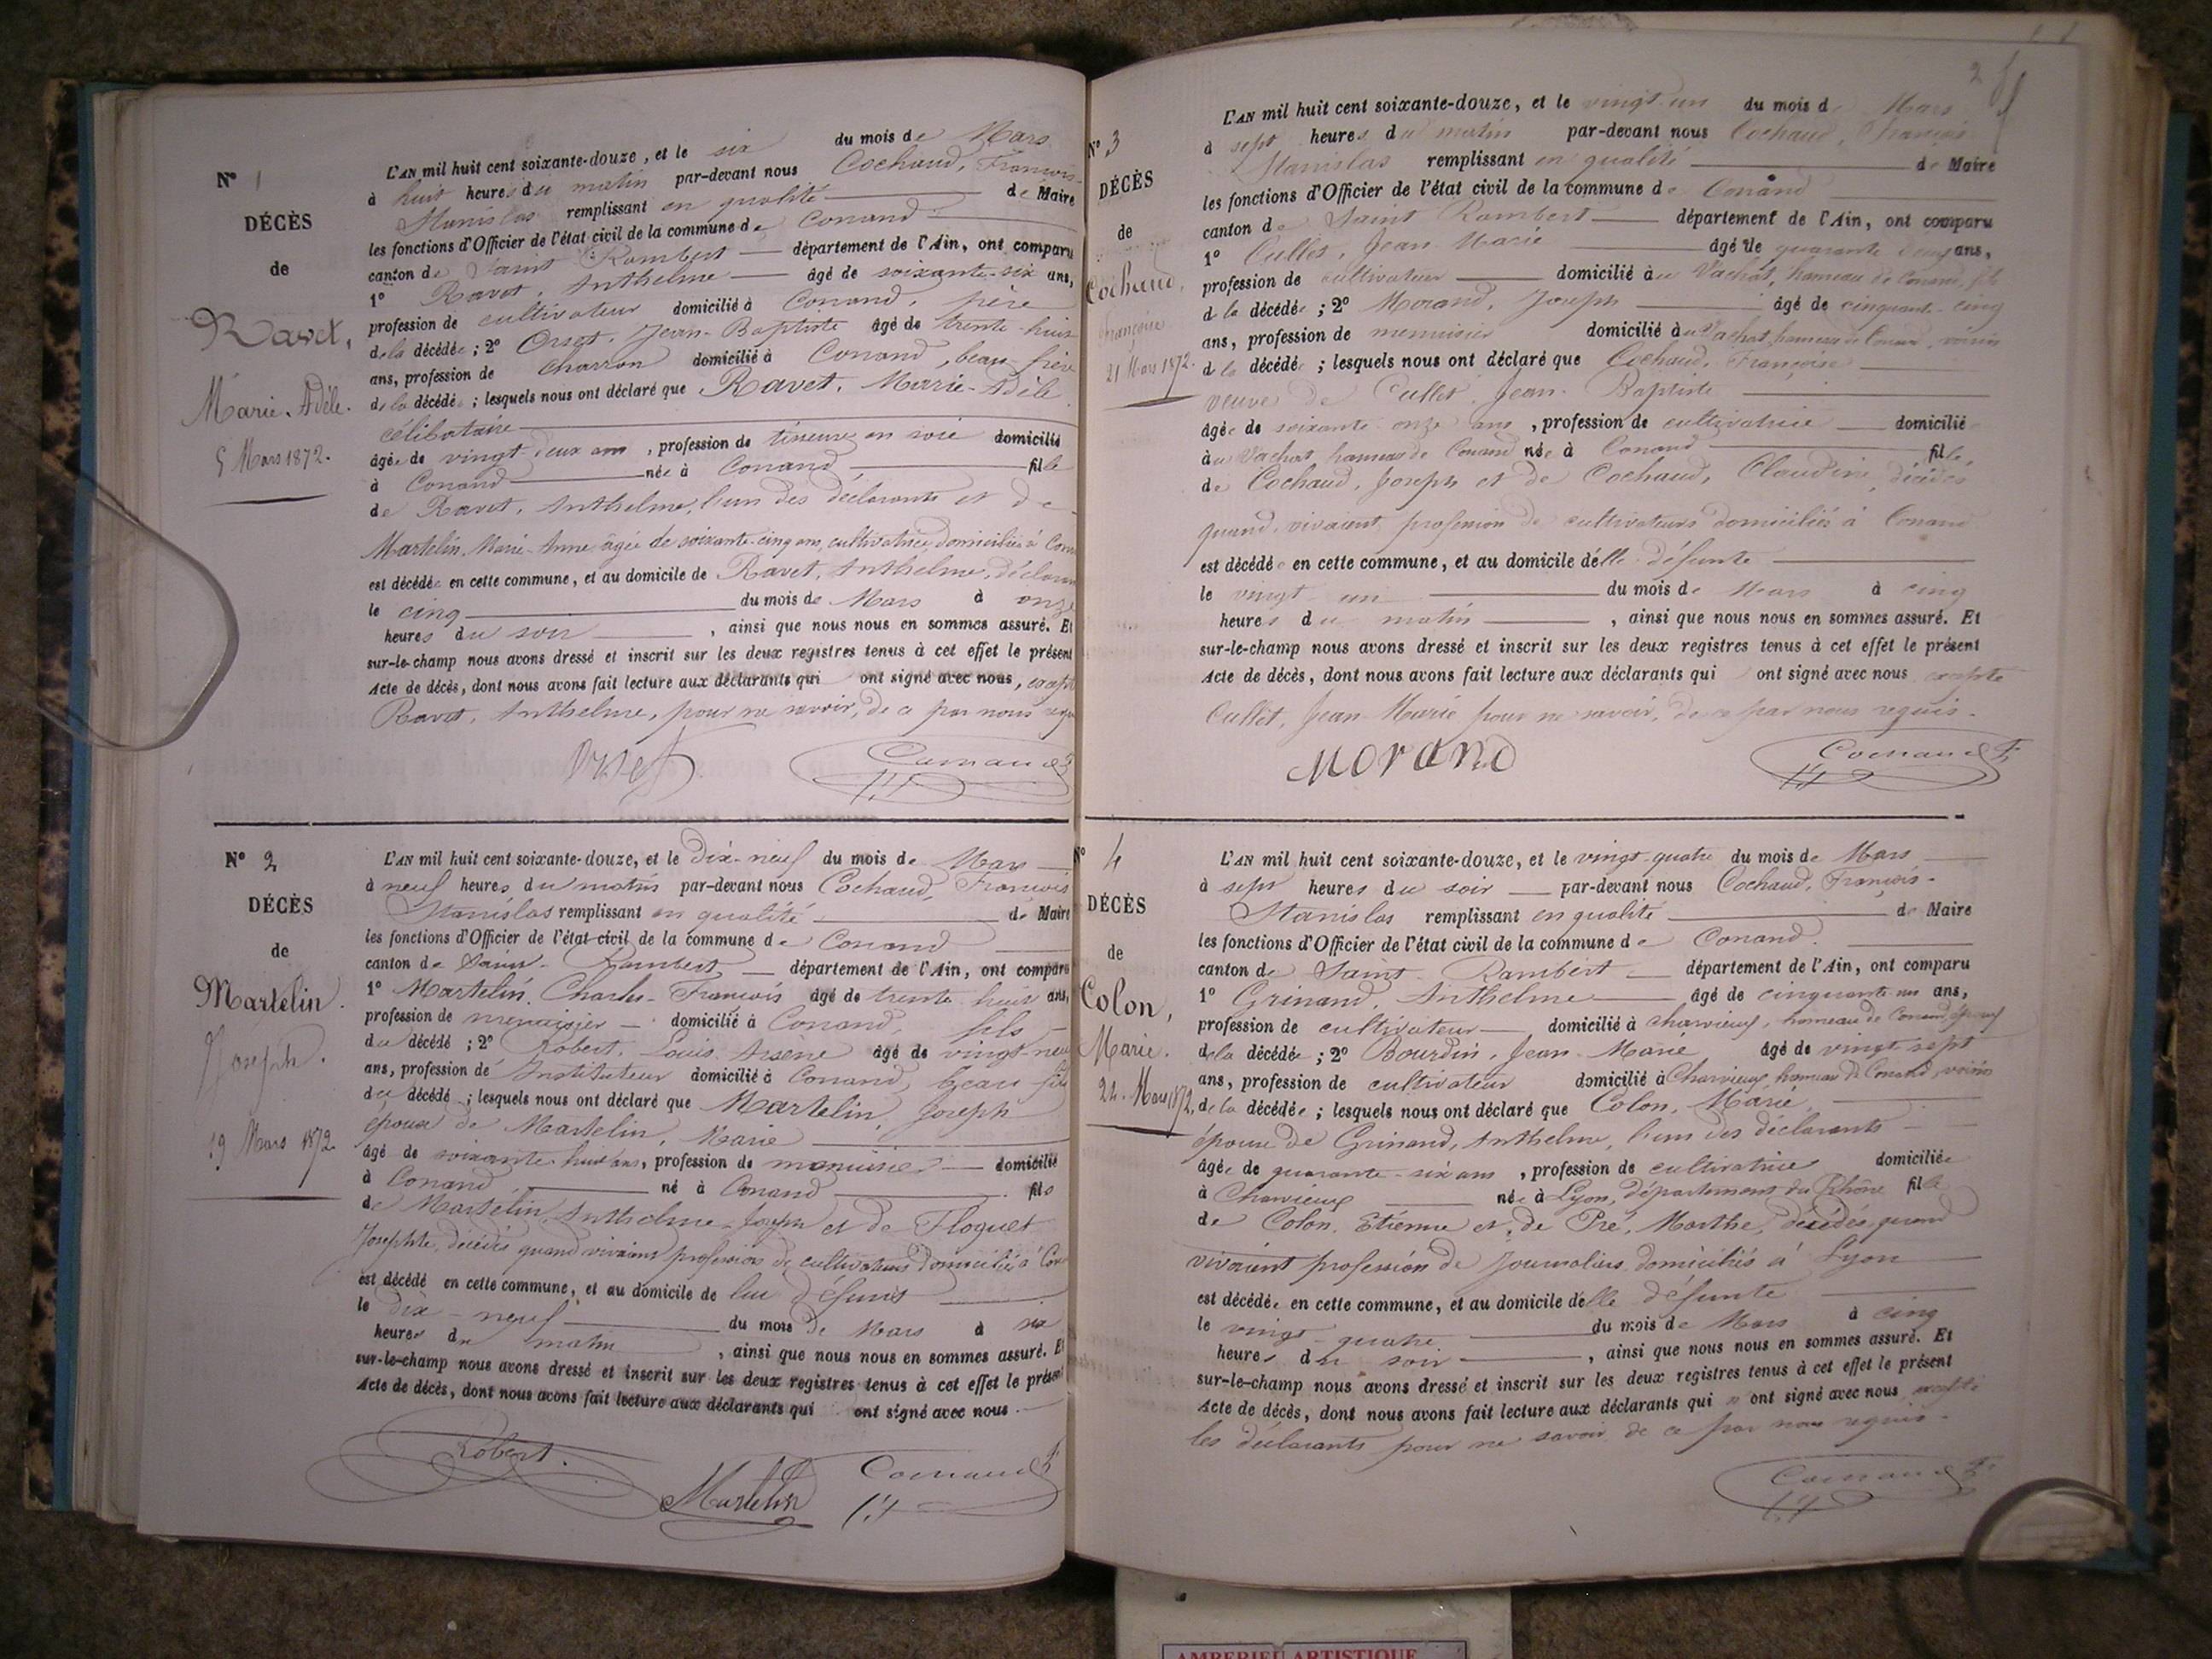 N° 1
DÉCÈS
de
Ravet,
Marie-Adèle.
5 Mars 1872.
L'AN mil huit cent soixante-douze, et le six du mois de Mars
à huit heures du matin par-devant nous Cochaud, François-
Stanislas remplissant en qualité de Maire
les fonctions d'Officier de l'état civil de la commune de Conand
canton de Saint Rambert département de l'Ain, ont comparu
1° Ravet, Anthelme âgé de soixante-six ans,
profession de cultivateur domicilié à Conand, père
de la décédée ; 2° Orset, Jean-Baptiste âgé de trente-huit
ans, profession de charron domicilié à Conand, beau-frère
de la décédée ; lesquels nous ont déclaré que Ravet, Marie-Adèle
célibataire
âgée de vingt-deux ans, profession de tisseuse en soie domicilié
à Conand née à Conand fille
de Ravet, Anthelme, l'un des déclarants et de
Martelin, Marie-Anne âgée de soixante-cinq ans, cultivatrice, domiciliée à
est décédée en cette commune, et au domicile de Ravet, Anthelme,
le cinq du mois de Mars à onze
heures du soir, ainsi que nous nous en sommes assuré. Et
sur-le-champ nous avons dressé et inscrit sur les deux registres tenus à cet effet le présent
Acte de décès, dont nous avons fait lecture aux déclarants qui ont signé avec nous,
Ravet, Anthelme, pour ne savoir, de ce par nous
Orset
N° 2
DÉCÈS
de
Martelin.
Joseph.
19 Mars 1872.
L'AN mil huit cent soixante-douze, et le dix-neuf du mois de Mars
à neuf heures du matin par-devant nous Cochaud, François
Stanislas remplissant en qualité de Maire
les fonctions d'Officier de l'état civil de la commune de Conand
canton de Saint-Rambert département de l'Ain, ont comparu
1° Martelin, Charles-François âgé de trente huit ans,
profession de menuisier domicilié à Conand, fils
du décédé ; 2° Robert, Louis Arsène âgé de vingt-neuf
ans, profession de Instituteur domicilié à Conand, beau-fils
du décédé ; lesquels nous ont déclaré que Martelin, Joseph
époux de Martelin, Marie
âgé de soixante-huit ans, profession de menuisier domicilié
à Conand né à Conand fils
de Martelin, Anthelme-Joseph et de Floquet
Josephte, décédés quand vivaient profession de cultivateurs domiciliés à
est décédé en cette commune, et au domicile de lui défunt
le dix-neuf du mois de Mars à six
heures du matin, ainsi que nous nous en sommes assuré. Et
sur-le-champ nous avons dressé et inscrit sur les deux registres tenus à cet effet le présent
Acte de décès, dont nous avons fait lecture aux déclarants qui ont signé avec nous.
Robert.
Martelin
2
N° 3
DÉCÈS
de
Cochaud,
Françoise
21 Mars 1872.
L'AN mil huit cent soixante-douze, et le vingt-un du mois de Mars
à sept heures du matin par-devant nous Cochaud, François
Stanislas remplissant en qualité de Maire
les fonctions d'Officier de l'état civil de la commune de Conand
canton de Saint Rambert département de l'Ain, ont comparu
1° Cullet, Jean-Marie âgé de quarante ans,
profession de cultivateur domicilié au Vachat, hameau de Conand, fils
de la décédée ; 2° Morand, Joseph âgé de cinquante-cinq
ans, profession de menuisier domicilié au Vachat, hameau de Conand, voisin
de la décédée ; lesquels nous ont déclaré que Cochaud, Françoise
veuve de Cullet, Jean-Baptiste
âgée de soixante-onze ans, profession de cultivatrice domiciliée
au Vachat, hameau de Conand née à Conand fille
de Cochaud, Joseph et de Cochaud, Claudine, décédés
quand vivaient, profession de cultivateurs domiciliés à Conand
est décédée en cette commune, et au domicile d'elle défunte
le vingt-un du mois de Mars à cinq
heures du matin, ainsi que nous nous en sommes assuré. Et
sur-le-champ nous avons dressé et inscrit sur les deux registres tenus à cet effet le présent
Acte de décès, dont nous avons fait lecture aux déclarants qui ont signé avec nous excepté
Cullet, Jean-Marie pour ne savoir, de ce par nous requis.
MORAND
N° 4
DÉCÈS
de
Colon,
Marie.
24 Mars 1872.
L'AN mil huit cent soixante-douze, et le vingt-quatre du mois de Mars
à sept heures du soir par-devant nous Cochaud, François-
Stanislas remplissant en qualité de Maire
les fonctions d'Officier de l'état civil de la commune de Conand.
canton de Saint-Rambert département de l'Ain, ont comparu
1° Grinand, Anthelme âgé de cinquante-un ans,
profession de cultivateur domicilié à Charvieux, hameau de Conand, époux
de la décédée ; 2° Bourdin, Jean-Marie âgé de vingt-sept
ans, profession de cultivateur domicilié à Charvieux, hameau de Conand, voisin
de la décédée ; lesquels nous ont déclaré que Colon, Marie,
épouse de Grinand, Anthelme, l'un des déclarants
âgée de quarante-six ans, profession de cultivatrice domiciliée
à Charvieux née à Lyon, département du Rhône fille
de Colon, Etienne et de Pré, Marthe, décédés, quand
vivaient profession de journaliers domiciliés à Lyon
est décédée en cette commune, et au domicile d'elle défunte
le vingt-quatre du mois de Mars à cinq
heures du soir, ainsi que nous nous en sommes assuré. Et
sur-le-champ nous avons dressé et inscrit sur les deux registres tenus à cet effet le présent
Acte de décès, dont nous avons fait lecture aux déclarants qui ont signé avec nous excepté
les déclarants pour ne savoir de ce par nous requis.
AMBERIEU ARTISTIQUE